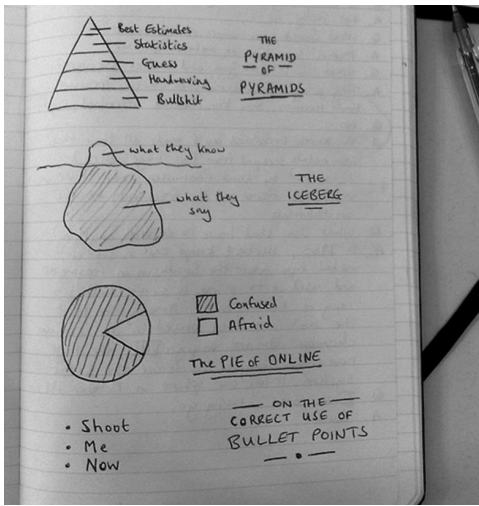 Best Estimates
Statistics
Guess
Handwaving
Bullshit
THE
PYRAMID
OF
PYRAMIDS
what they know
what they
say
THE
ICEBERG
Confused
Afraid
The PIE of ONLINE
• Shoot
• Me
• Now
ON THE
CORRECT USE OF
BULLET POINTS